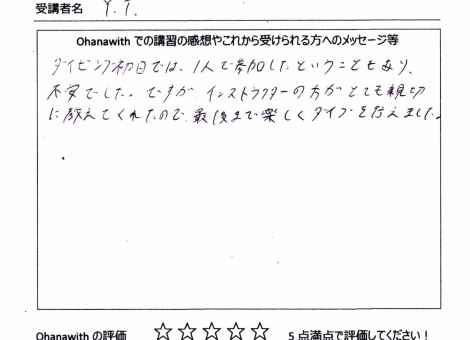 受講者名 Y.T.
Ohanawith での講習の感想やこれから受けられる方へのメッセージ等
ダイビング初日では、1人で参加したということもあり、
不安でした。ですが、インストラクターの方がとても親切
に教えてくれたので、最後まで楽しくダイブを行えました。
Ohanawith の評価 ☆☆☆☆☆ 5 点満点で評価してください!